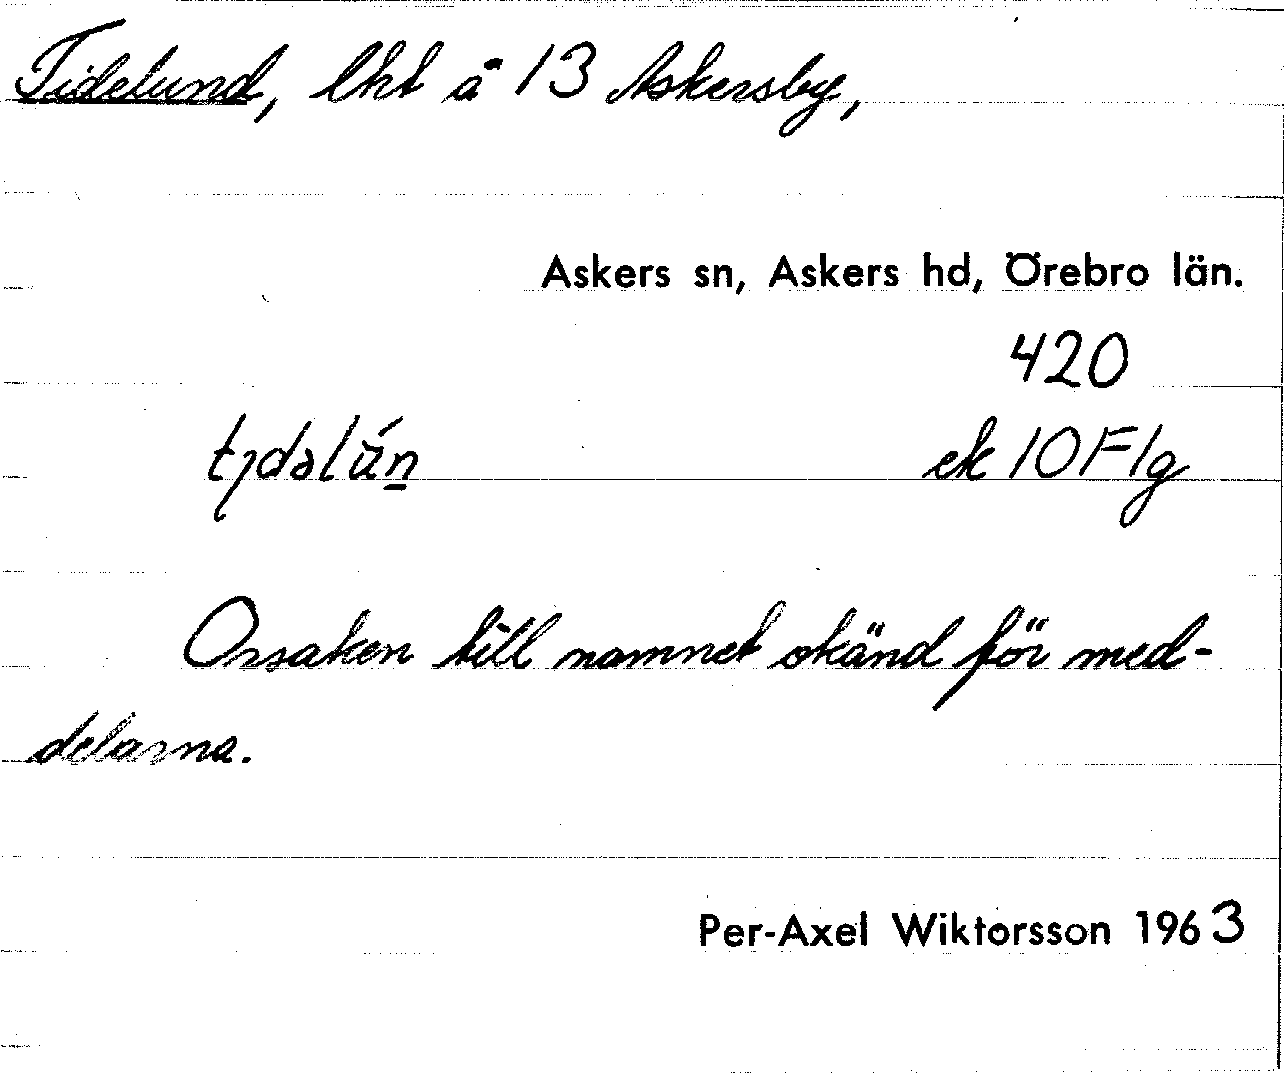 Tidelund, lht å 13 Askersby,
Askers sn, Askers hd, Örebro län.
420
tɩdəlún̲ ek 10 F 1g
Orsaken till namnet okänd för med-
delarna.
Per-Axel Wiktorsson 1963